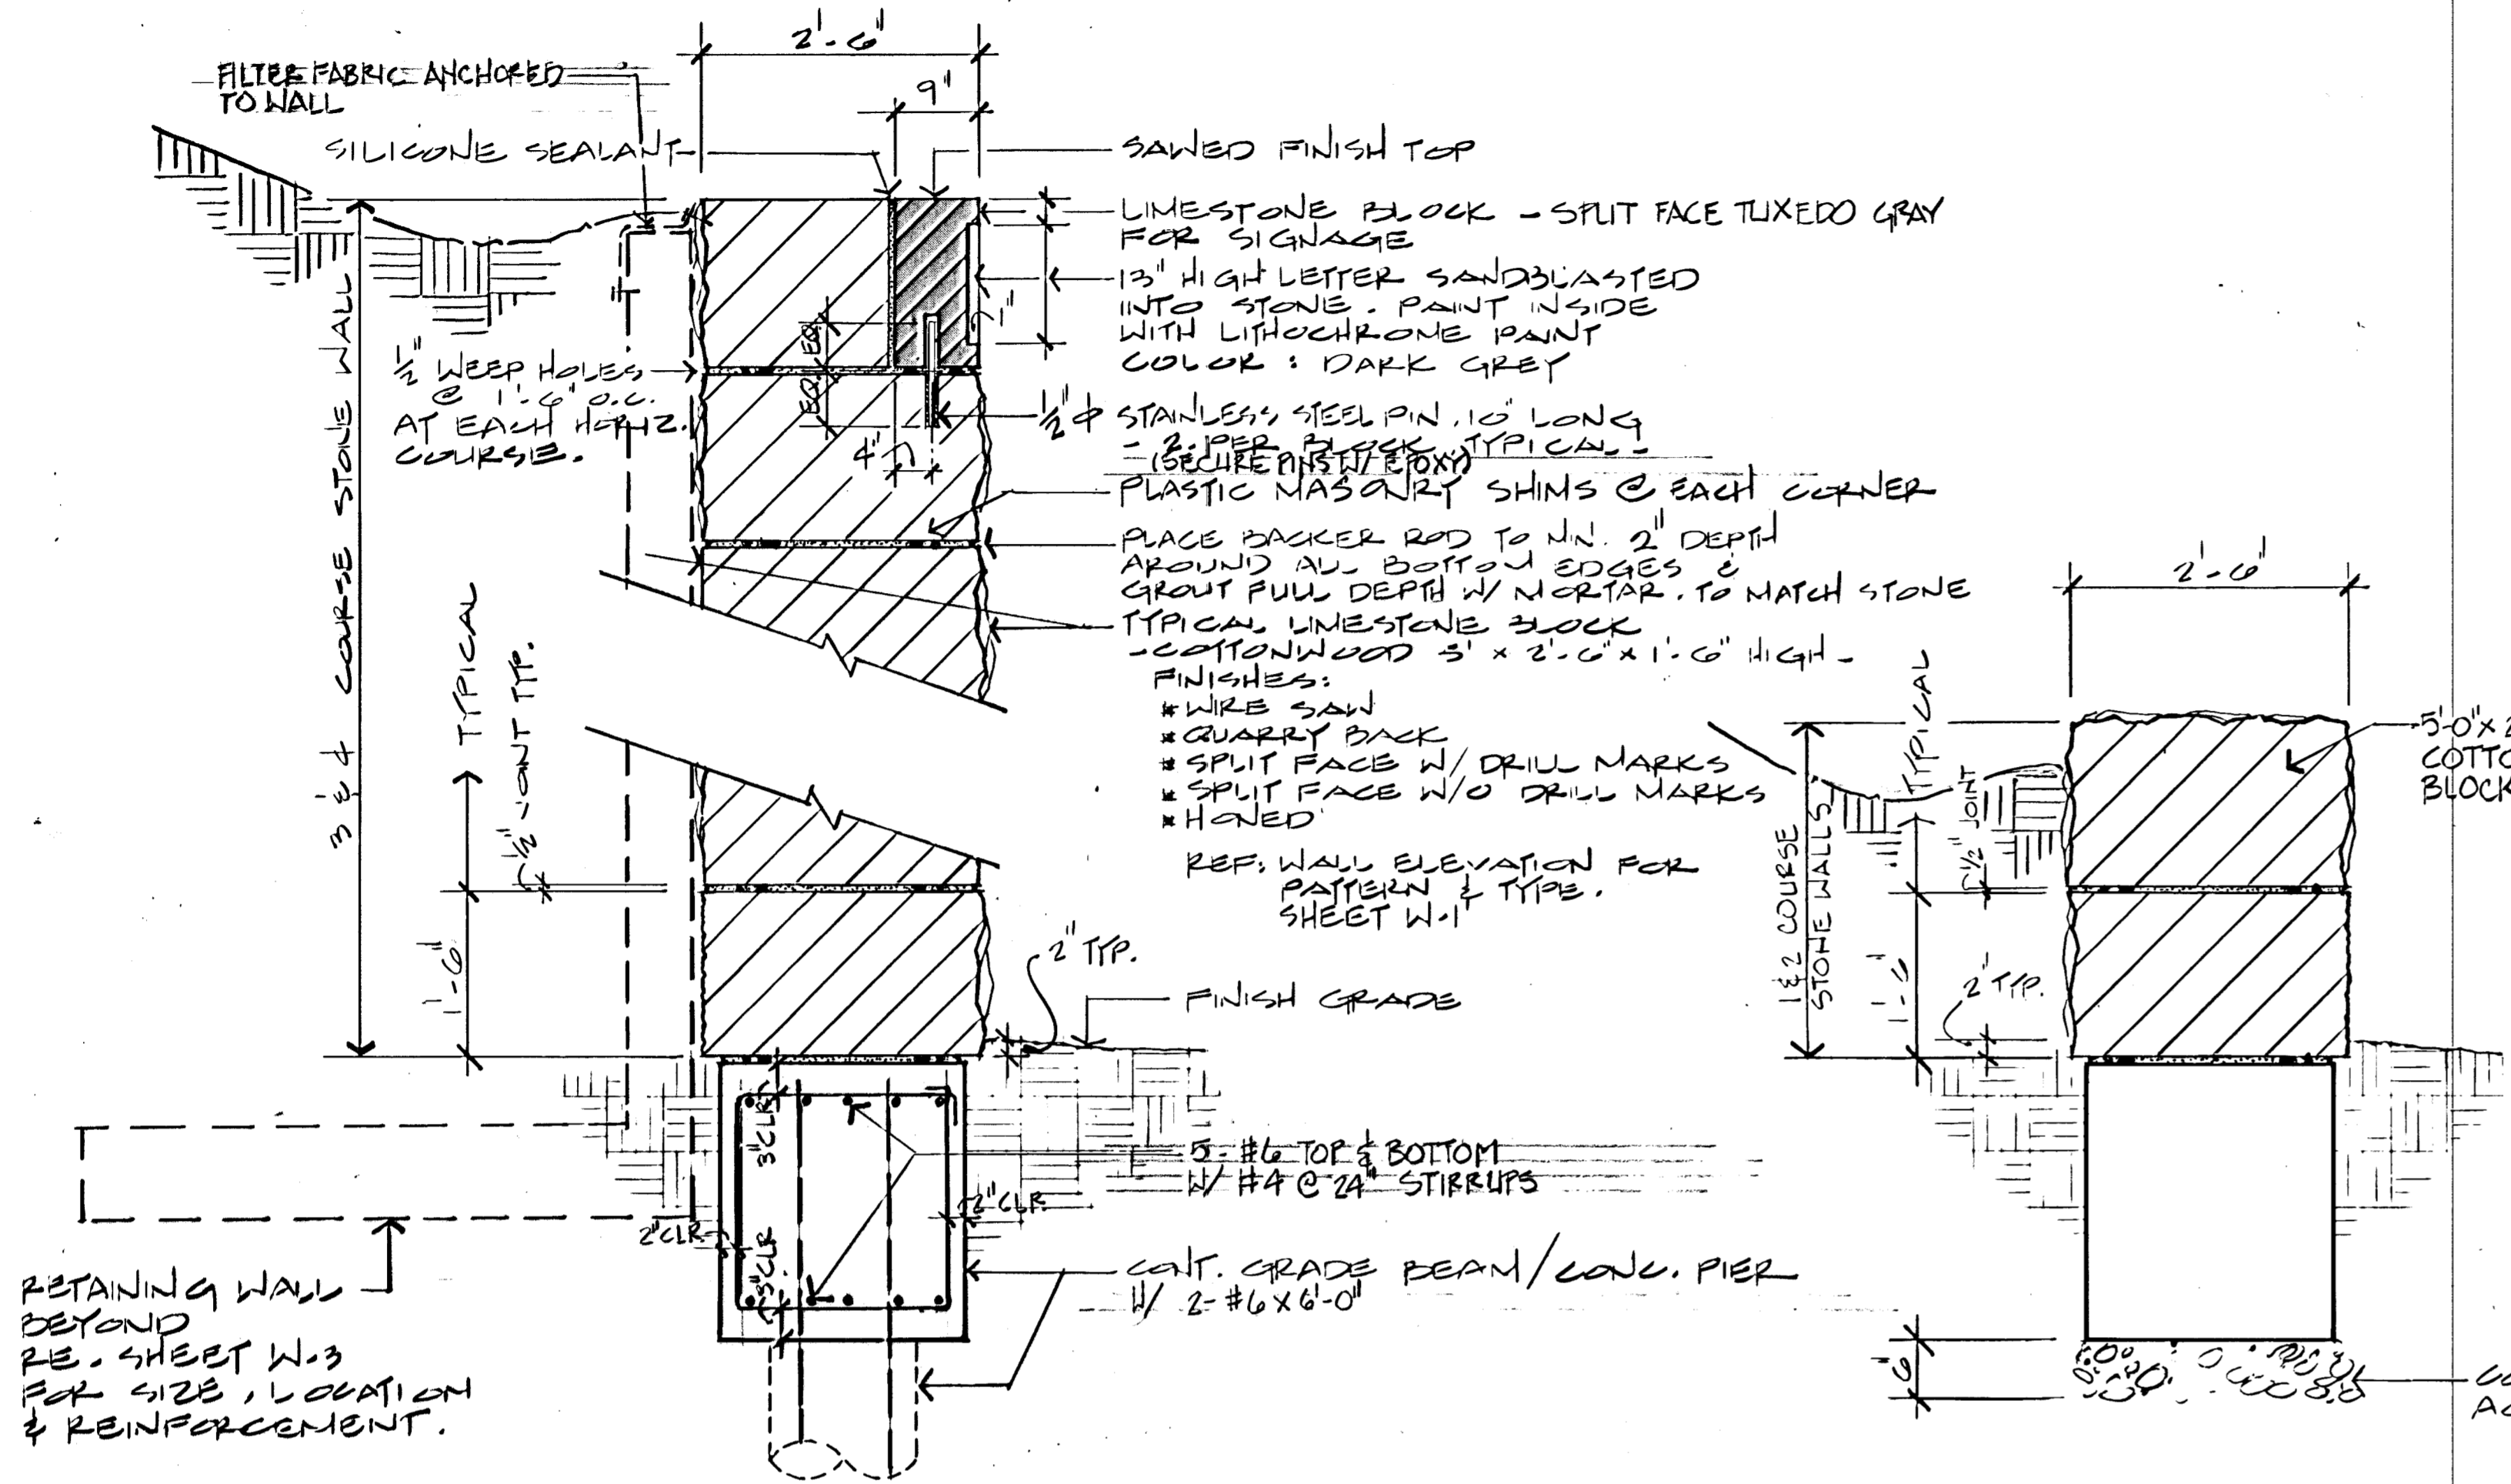 2'-6"
FILTER FABRIC ANCHORED
TO WALL
9"
SILICONE SEALANT
SAWED FINISH TOP
LIMESTONE BLOCK - SPLIT FACE TUXEDO GRAY
FOR SIGNAGE
13" HIGH LETTER SANDBLASTED
INTO STONE. PAINT INSIDE
WITH LITHOCHROME PAINT
COLOR : DARK GREY
1"
EQ. EQ.
1/2" WEEP HOLES
@ 1'-6" O.C.
AT EACH HORIZ.
COURSE.
1/2" φ STAINLESS STEEL PIN, 10" LONG
- 2 PER BLOCK, TYPICAL -
(SECURE PINS W/ EPOXY)
4"
PLASTIC MASONRY SHIMS @ EACH CORNER
PLACE BACKER ROD TO MIN. 2" DEPTH
AROUND ALL BOTTOM EDGES &
GROUT FULL DEPTH W/ MORTAR. TO MATCH STONE
TYPICAL LIMESTONE BLOCK
- COTTONWOOD 5' x 2'-6" x 1'-6" HIGH -
FINISHES:
* WIRE SAW
* QUARRY BACK
* SPLIT FACE W/ DRILL MARKS
* SPLIT FACE W/O DRILL MARKS
* HONED
REF: WALL ELEVATION FOR
PATTERN & TYPE.
SHEET W-1
3 & 4 COURSE STONE WALL
TYPICAL
1/2" JOINT TYP.
1'-6"
2" TYP.
FINISH GRADE
3" CLR
3" CLR
2" CLR
2" CLR.
5- #6 TOP & BOTTOM
W/ #4 @ 24" STIRRUPS
CONT. GRADE BEAM/CONC. PIER
W/ 2- #6 X 6'-0"
RETAINING WALL
BEYOND
RE. SHEET W-3
FOR SIZE, LOCATION
& REINFORCEMENT.
2'-6"
TYPICAL
1/2" JOINT
1 & 2 COURSE
STONE WALLS
1'-6"
2" TYP.
6"
5'-0" x 2
COTTO
BLOCK